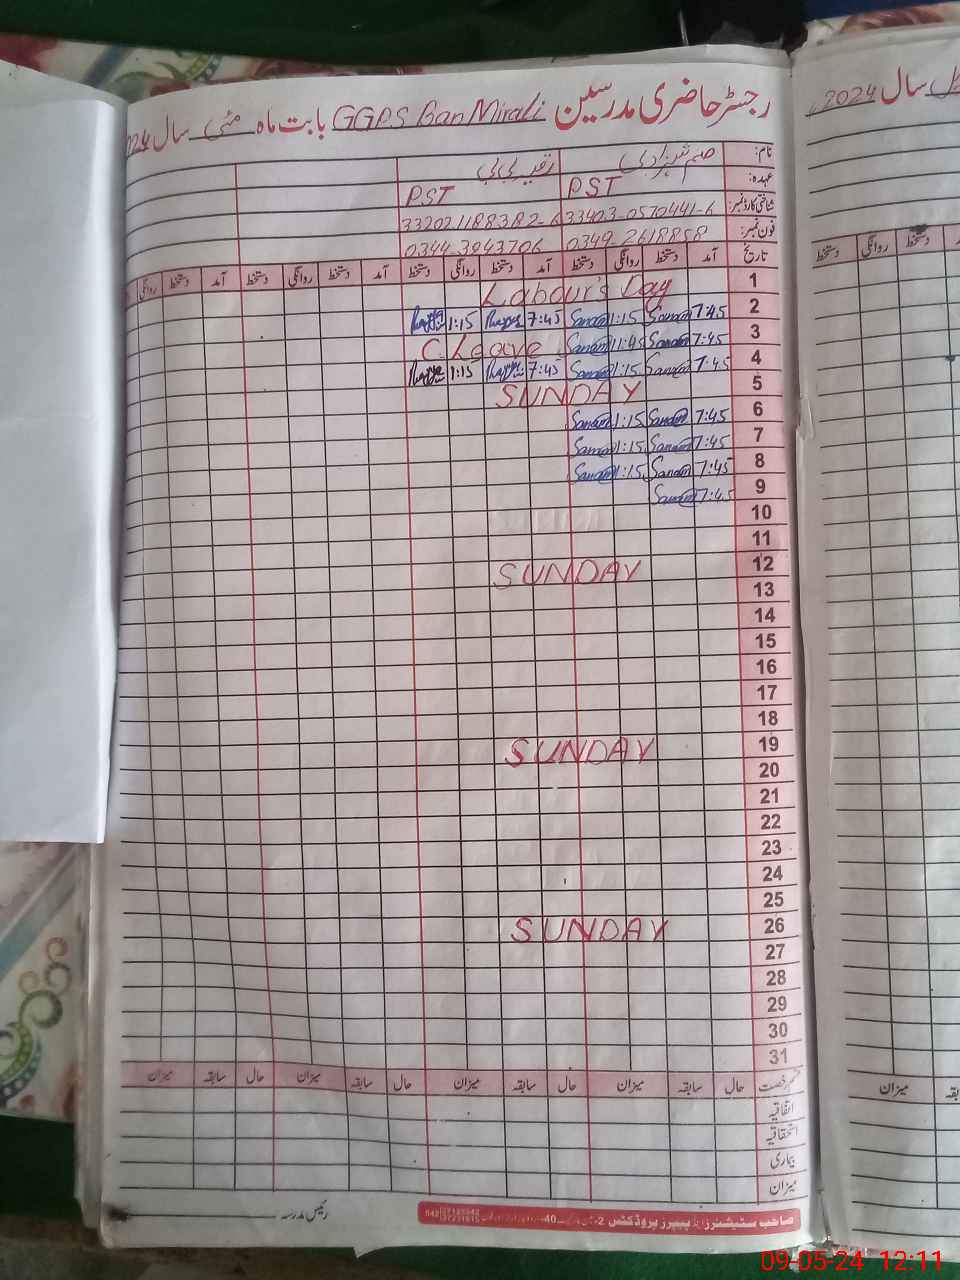 رجسٹر حاضری مدرسین GGPS Ban Mirali بابت ماہ مئی سال 2024
نام: صنم شہزادی رقیہ بی بی
عہدہ: PST PST
شناختی کارڈ نمبر: 33403-0570441-6 332021188382-6
فون نمبر: 0349-2618858 0344-3943706
تاریخ آمد دستخط روانگی دستخط آمد دستخط روانگی دستخط آمد دستخط روانگی دستخط آمد دستخط روانگی
1 Labour's Day
2 7:45 Sanam 1:15 Sanam 7:45 1:15
3 7:45 Sanam 11:45 Sanam C. Leave
4 7:45 Sanam 1:15 Sanam 7:45 1:15
5 SUNDAY
6 7:45 Sanam 1:15 Sanam
7 7:45 Sanam 1:15 Sanam
8 7:45 Sanam 1:15 Sanam
9 7:45 Sanam
10
11
12 SUNDAY
13
14
15
16
17
18
19 SUNDAY
20
21
22
23
24
25
26 SUNDAY
27
28
29
30
31
رخصت حال سابقہ میزان حال سابقہ میزان حال سابقہ میزان حال سابقہ میزان
اتفاقیہ
استحقاقیہ
بیماری
میزان
رئیس مدرسہ
صاحب سٹیشنرز اینڈ پیپرز پروڈکٹس
سال 2024
دستخط روانگی دستخط
میزان
09-05-24 12:11